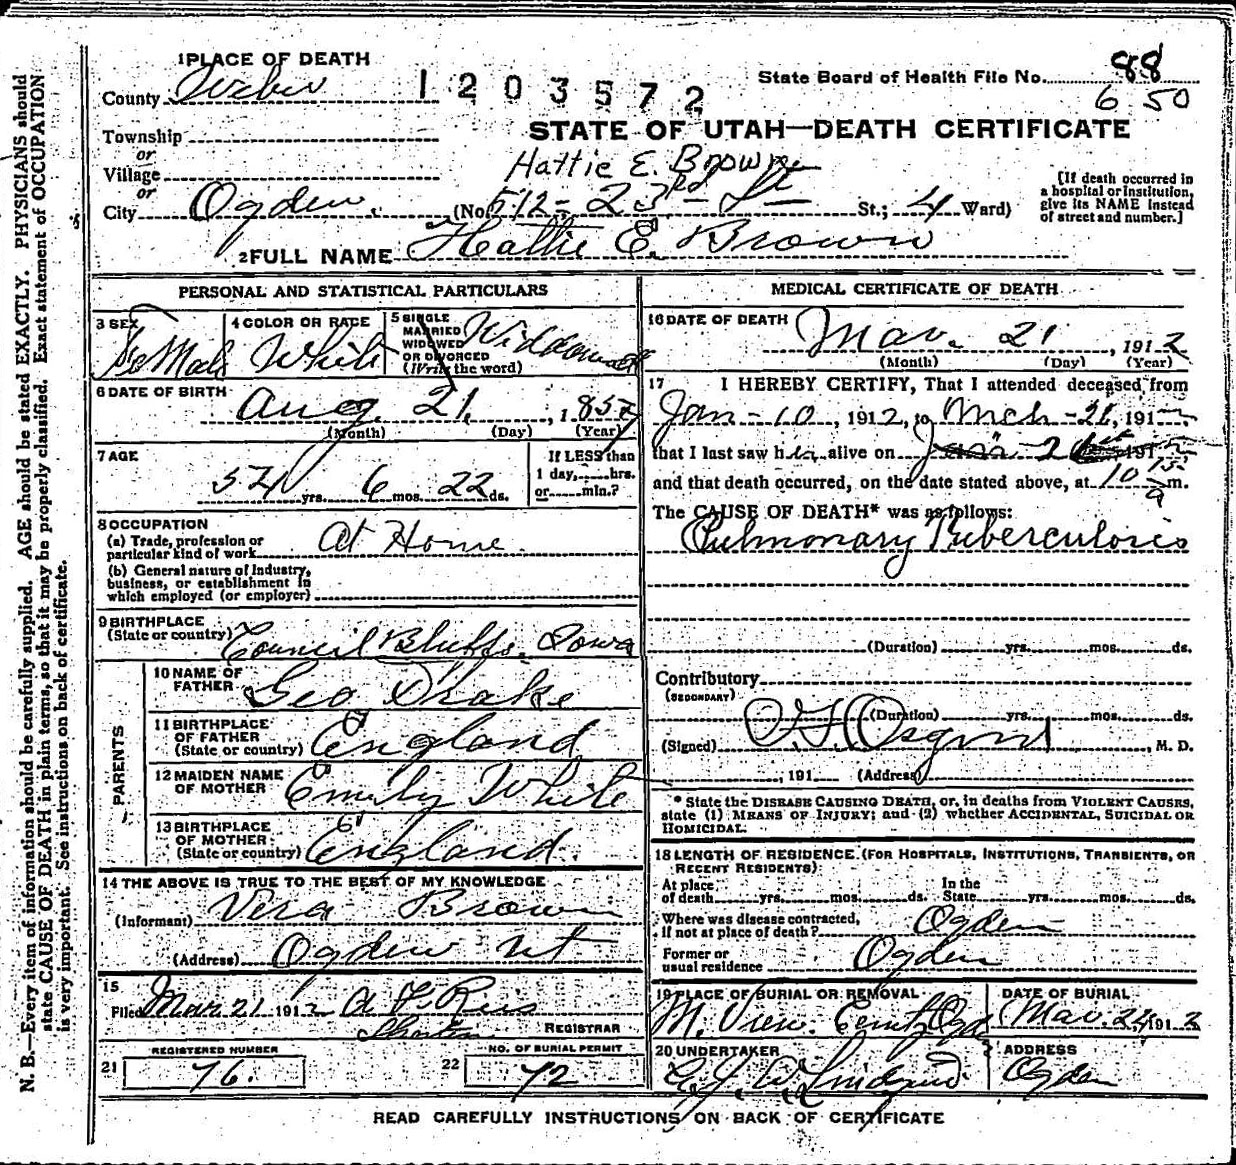 1 PLACE OF DEATH
County Weber
1203572
State Board of Health File No. 88
650
STATE OF UTAH—DEATH CERTIFICATE
Township
or
Village
or
City Ogden.
Hattie E. Brown
(No. 512 - 23rd St St.; 4 Ward)
[If death occurred in
a hospital or institution,
give its NAME instead
of street and number.]
2 FULL NAME Hattie E. Brown
PERSONAL AND STATISTICAL PARTICULARS
3 SEX
FeMale
4 COLOR OR RACE
White
5 SINGLE
MARRIED
WIDOWED
OR DIVORCED
(Write the word)
Widdowed
6 DATE OF BIRTH
Aug. 21, 1857
(Month) (Day) (Year)
7 AGE
54 yrs. 6 mos. 22 ds.
If LESS than
1 day, hrs.
or min.?
8 OCCUPATION
(a) Trade, profession or
particular kind of work At Home.
(b) General nature of Industry,
business, or establishment in
which employed (or employer)
9 BIRTHPLACE
(State or country) Council Bluffs. Iowa
PARENTS
10 NAME OF
FATHER Geo Drake
11 BIRTHPLACE
OF FATHER
(State or country) England
12 MAIDEN NAME
OF MOTHER Emily White
13 BIRTHPLACE
OF MOTHER
(State or country) England.
14 THE ABOVE IS TRUE TO THE BEST OF MY KNOWLEDGE
(Informant) Vera Brown
(Address) Ogden Ut
15
Filed Mar. 21 1912
REGISTRAR
REGISTERED NUMBER
21 76.
NO. OF BURIAL PERMIT
22 72
MEDICAL CERTIFICATE OF DEATH
16 DATE OF DEATH
Mar. 21, 1912
(Month) (Day) (Year)
17 I HEREBY CERTIFY, That I attended deceased from
Jan - 10, 1912, to Mch - 21, 191
that I last saw her alive on 191
and that death occurred, on the date stated above, at 10 15 a m.
The CAUSE OF DEATH* was as follows:
Pulmonary Tuberculosis
(Duration) yrs. mos. ds.
Contributory
(SECONDARY)
(Duration) yrs. mos. ds.
(Signed) Osgood, M. D.
, 191 (Address)
* State the DISEASE CAUSING DEATH, or, in deaths from VIOLENT CAUSES,
state (1) MEANS OF INJURY; and (2) whether ACCIDENTAL, SUICIDAL OR
HOMICIDAL.
18 LENGTH OF RESIDENCE (FOR HOSPITALS, INSTITUTIONS, TRANSIENTS, OR
RECENT RESIDENTS)
At place
of death yrs. mos. ds.
In the
State yrs. mos. ds.
Where was disease contracted,
if not at place of death? Ogden
Former or
usual residence Ogden
19 PLACE OF BURIAL OR REMOVAL
M. View. Cemt Ogd
DATE OF BURIAL
Mar. 24, 1912
20 UNDERTAKER
Lindquist
ADDRESS
Ogden
READ CAREFULLY INSTRUCTIONS ON BACK OF CERTIFICATE
N. B.—Every item of information should be carefully supplied. AGE should be stated EXACTLY. PHYSICIANS should
state CAUSE OF DEATH in plain terms, so that it may be properly classified. Exact statement of OCCUPATION
is very important. See instructions on back of certificate.